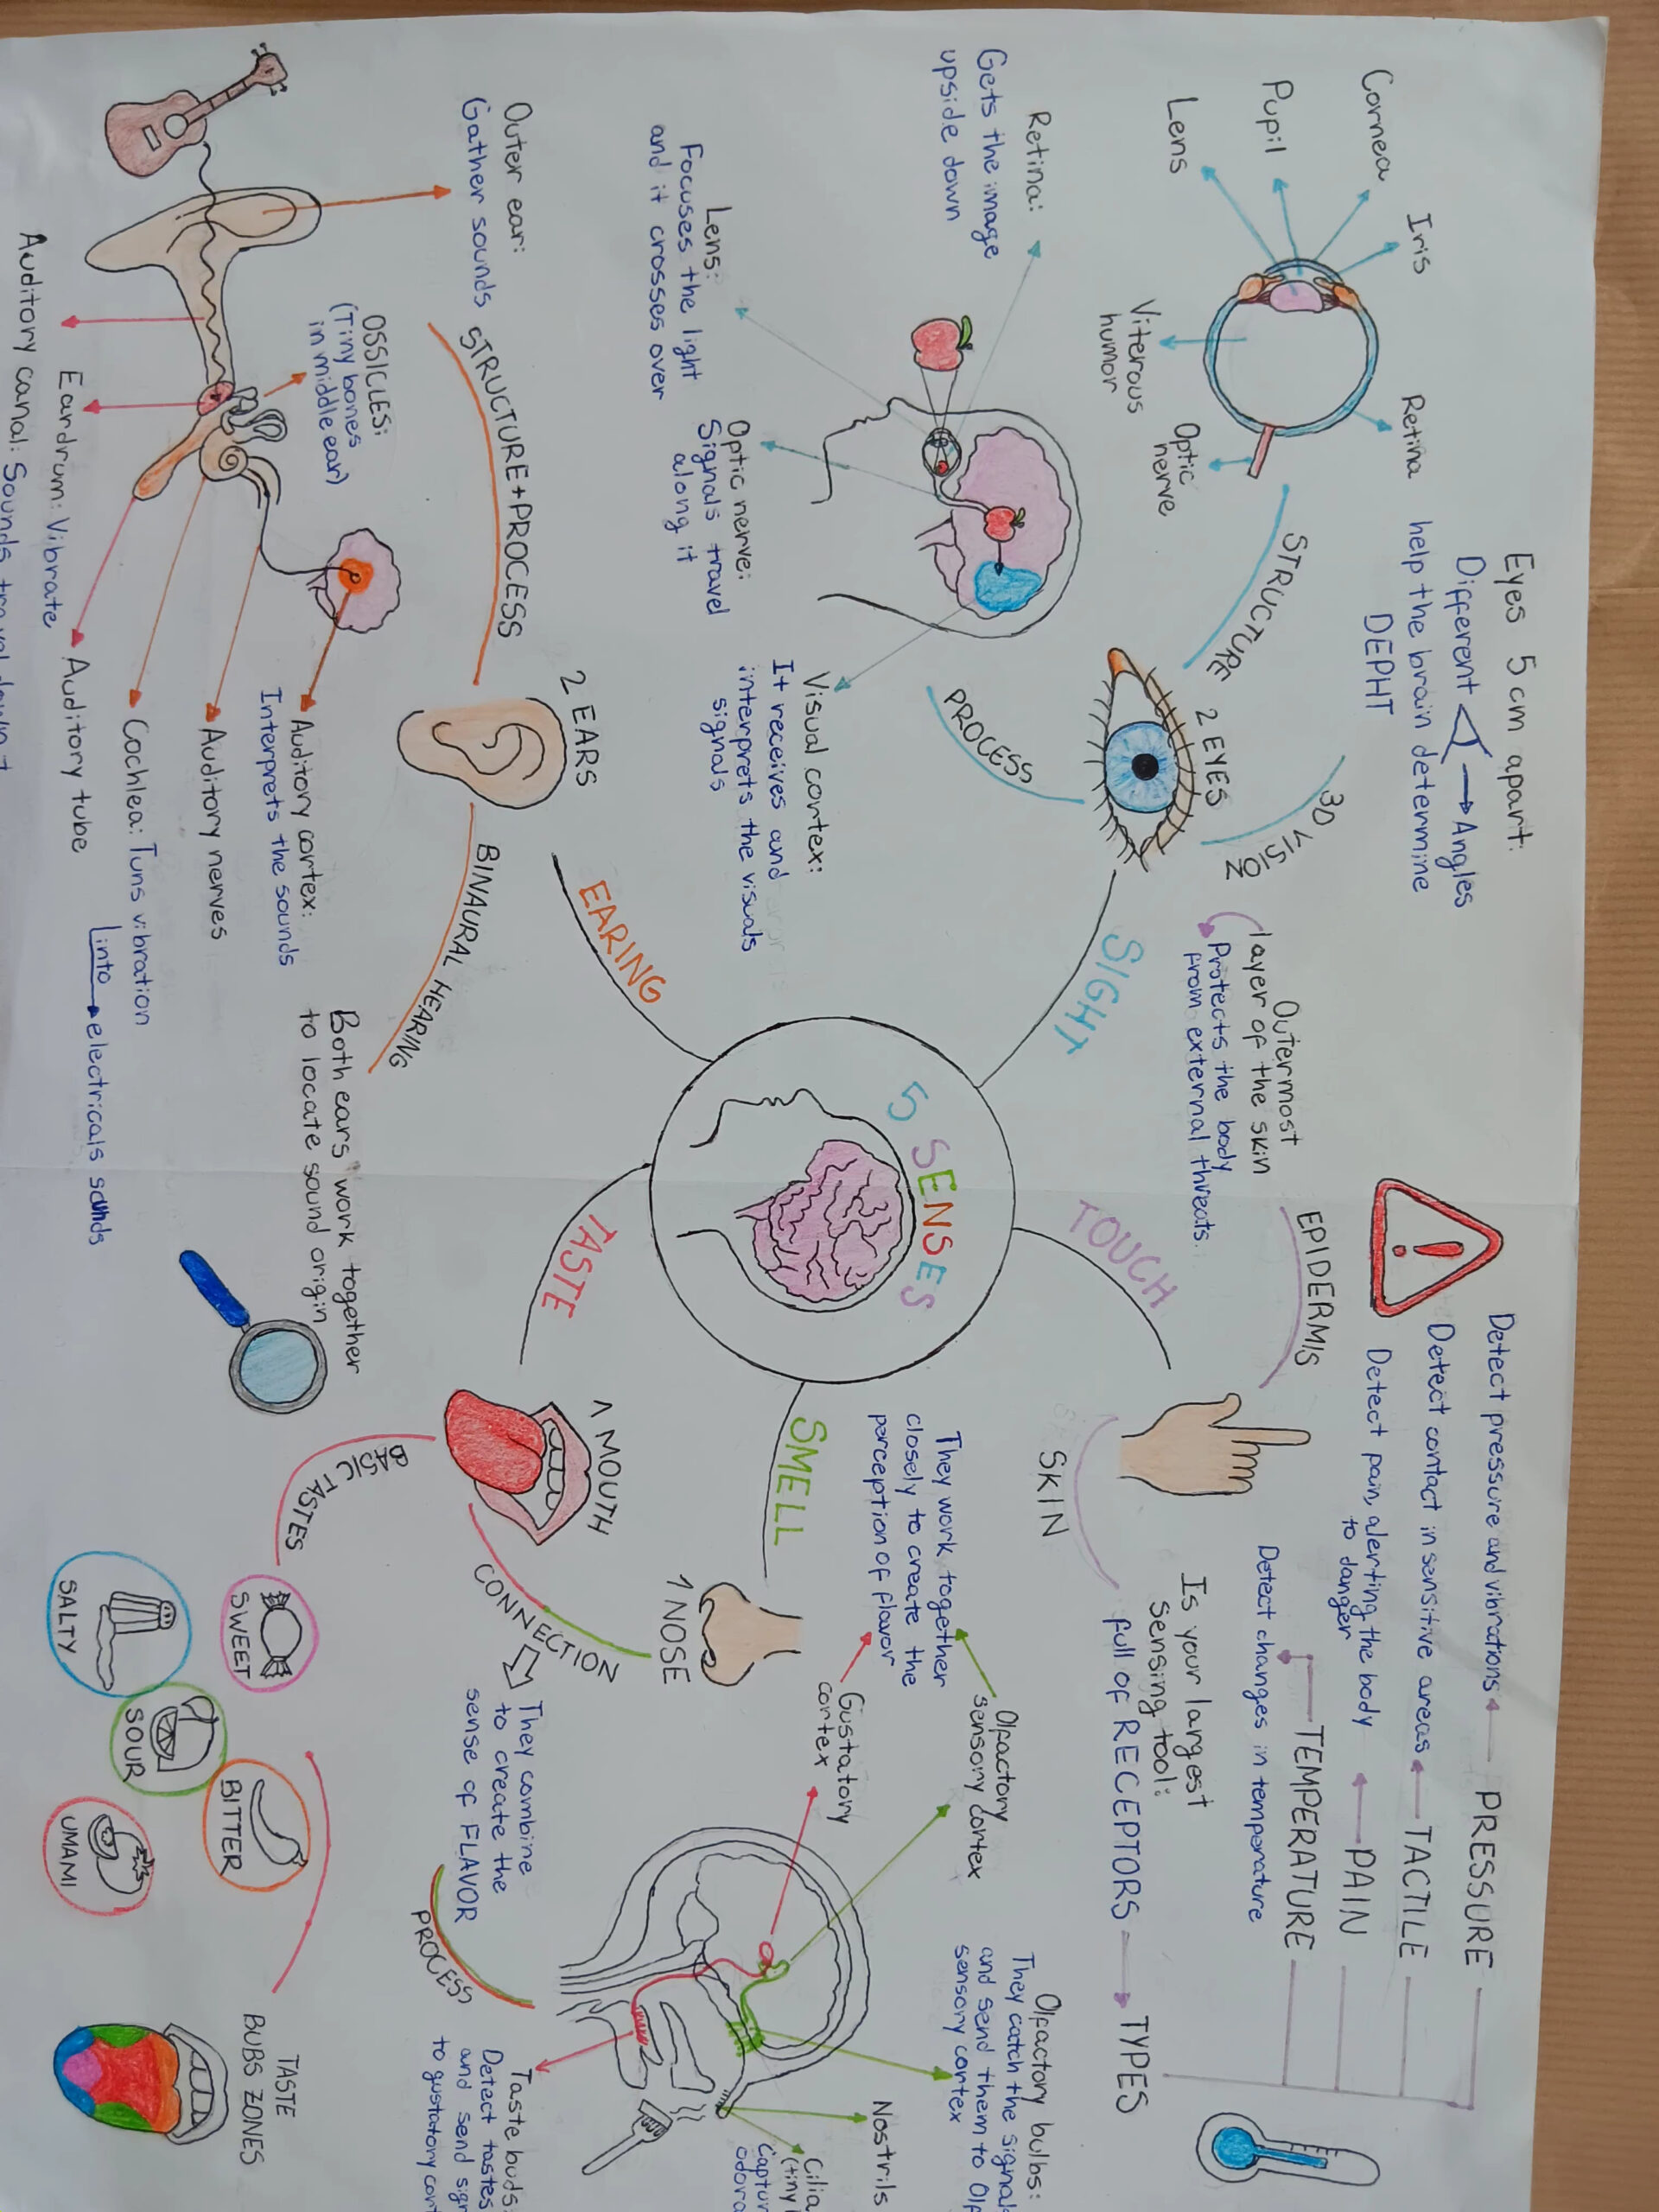 5 SENSES
SIGHT
2 EYES
STRUCTURE
Cornea
Iris
Pupil
Lens
Viterous
humor
Retina
Optic
nerve
3D VISION
Eyes 5 cm apart:
Different → Angles
help the brain determine
DEPHT
PROCESS
Retina:
Gets the image
upside down
Lens:
Focuses the light
and it crosses over
Optic nerve:
Signals travel
along it
Visual cortex:
It receives and
interprets the visuals
signals
EARING
2 EARS
STRUCTURE+PROCESS
Outer ear:
Gather sounds
OSSICLES:
(Tiny bones
in middle ear)
Auditory canal: Sounds travel down
Eardrum: Vibrate
Auditory tube
Cochlea: Tuns vibration
into → electricals sounds
Auditory nerves
Auditory cortex:
Interprets the sounds
BINAURAL HEARING
Both ears work together
to locate sound origin
TOUCH
EPIDERMIS
Outermost
layer of the skin
Protects the body
from external threats.
SKIN
Is your largest
sensing tool:
full of RECEPTORS → TYPES
PRESSURE
Detect pressure and vibrations
TACTILE
Detect contact in sensitive areas
PAIN
Detect pain, alerting the body
to danger
TEMPERATURE
Detect changes in temperature
SMELL
1 NOSE
TASTE
1 MOUTH
CONNECTION
They combine
to create the
sense of FLAVOR
They work together
closely to create the
perception of flavor
Olfactory
sensory cortex
Gustatory
cortex
PROCESS
Olfactory bulbs:
They catch the signals
and send them to Olf
sensory cortex
Nostrils
Cilia
(tiny
Captur
odora
Taste buds:
Detect tastes
and send sign
to gustatory cort
BASIC TASTES
SWEET
SALTY
SOUR
BITTER
UMAMI
TASTE
BUBS ZONES